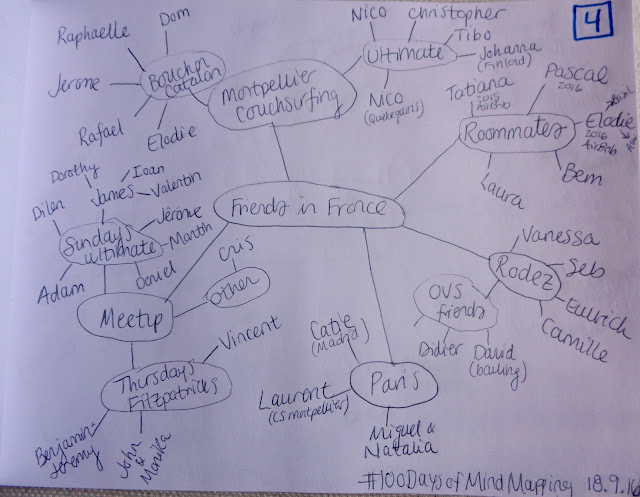 4
Nico
Christopher
Tibo
Johanna
(Finland)
Nico
(Quebequois)
Ultimate
Dom
Raphaelle
Jerome
Rafael
Elodie
Bouchon
Catalan
Montpellier
Couchsurfing
Tatiana
2015
AirBnb
Pascal
2016
Elodie
2016
AirBnb
Roommates
Laura
Bem
Friends in France
Dorothy
Ioan
James
Valentin
Dilen
Jérôme
Martin
Sundays
Ultimate
Adam
Daniel
Cris
Other
Meetup
Vincent
Thursdays
Fitzpatricks
Benjamin
Jeremy
John
&
Monika
Vanessa
Seb
Rodez
Camille
OVS
friends
Didier
David
(bowling)
Catie
(Madrid)
Laurent
(CS Montpellier)
Paris
Miguel &
Natalia
#100DaysofMindMapping 18.9.16